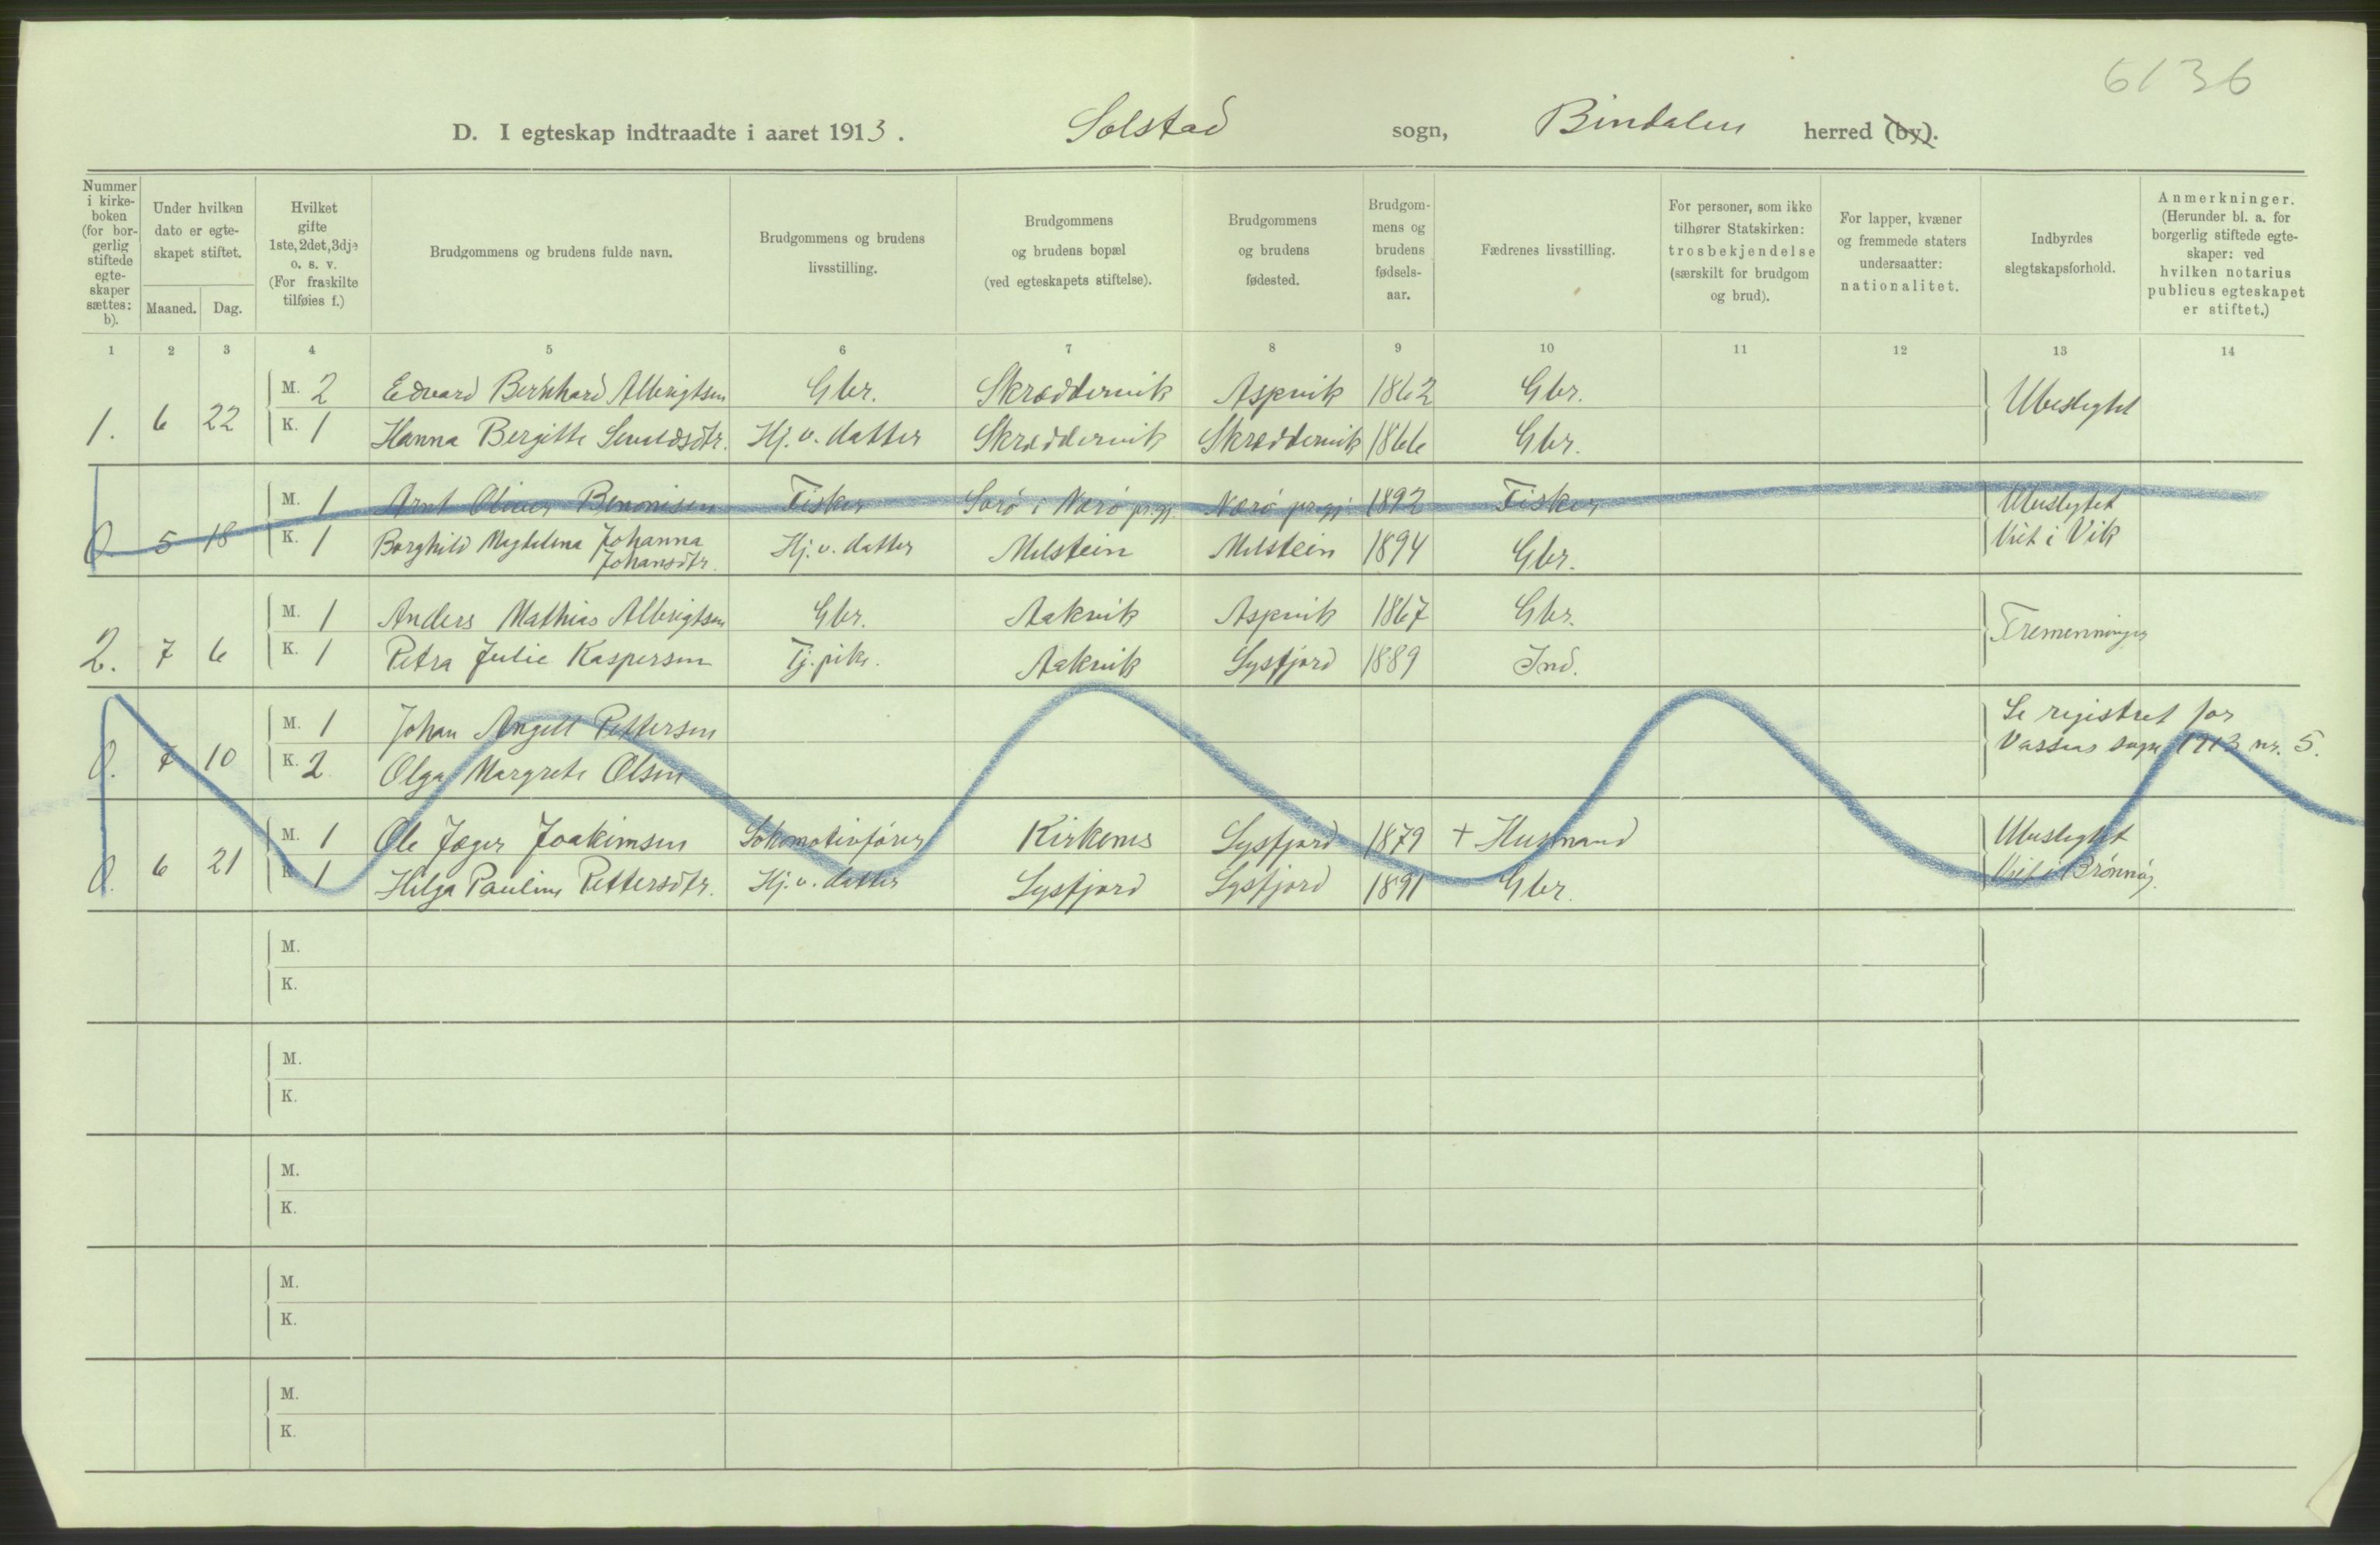 6136
D. I egteskap indtraadte i aaret 1913. Solstad sogn, Bindalen herred (by).
Nummer i kirkeboken (for borgerlig stiftede egteskaper sættes: b).
Under hvilken dato er egteskapet stiftet.
Maaned. Dag.
Hvilket gifte 1ste, 2det, 3dje o. s. v. (For fraskilte tilføies f.)
Brudgommens og brudens fulde navn.
Brudgommens og brudens livsstilling.
Brudgommens og brudens bopæl (ved egteskapets stiftelse).
Brudgommens og brudens fødested.
Brudgommens og brudens fødselsaar.
Fædrenes livsstilling.
For personer, som ikke tilhører Statskirken: trosbekjendelse (særskilt for brudgom og brud).
For lapper, kvæner og fremmede staters undersaatter: nationalitet.
Indbyrdes slegtskapsforhold.
Anmerkninger. (Herunder bl. a. for borgerlig stiftede egteskaper: ved hvilken notarius publicus egteskapet er stiftet.)
1 2 3 4 5 6 7 8 9 10 11 12 13 14
1. 6 22 M. 2 Edvard Bernhard Albrigtsen Gbr. Skræddervik Aspvik 1862 Gbr. Ubeslegtet
K. 1 Hanna Bergitte Hj. v. datter Skræddervik Skræddervik 1866 Gbr.
0. 5 18 M. 1 Arnt Oliver Benonisen Fisker i Nærø pr.gj. Nærø pr.gj. 1892 Fisker Ubeslegtet
K. 1 Borghild Magdalena Johanna Johansdtr. Hj. v. datter Melstein Melstein 1894 Gbr. Viet i Vik
2. 7 6 M. 1 Anders Mathias Albrigtsen Gbr. Aakvik Aspvik 1867 Gbr. Tremenninger
K. 1 Petra Julie Kaspersen Tj. pike. Aakvik Sysfjord 1889 Ind.
0. 7 10 M. 1 Johan Angell Pettersen Se registret for
K. 2 Olga Margrete Olsen Vassaas sogn 1913 nr. 5.
0. 6 21 M. 1 Ole Jæger Joakimsen Lokomotivfører Kirkenes Sysfjord 1879 + Husmand Ubeslegtet
K. 1 Helga Pauline Pettersdtr. Hj. v. datter Sysfjord Sysfjord 1891 Gbr. Viet i Brønnøy.
M.
K.
M.
K.
M.
K.
M.
K.
M.
K.